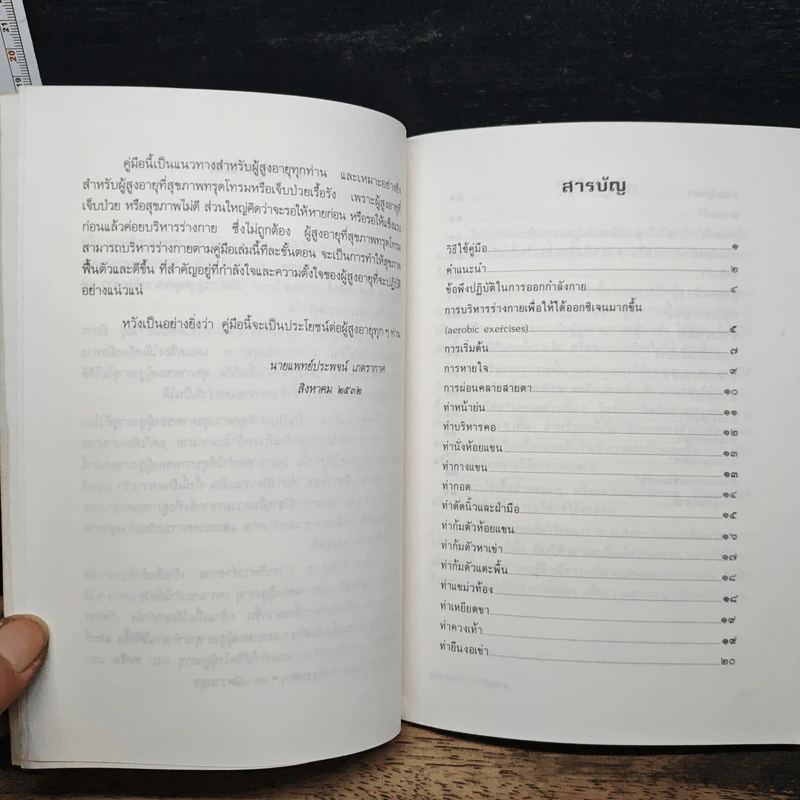 21
20
19
คู่มือนี้เป็นแนวทางสำหรับผู้สูงอายุทุกท่าน และเหมาะอย่างยิ่ง
สำหรับผู้สูงอายุที่สุขภาพทรุดโทรมหรือเจ็บป่วยเรื้อรัง เพราะผู้สูงอายุที่
เจ็บป่วย หรือสุขภาพไม่ดี ส่วนใหญ่คิดว่าจะรอให้หายก่อน หรือรอให้แข็งแรง
ก่อนแล้วค่อยบริหารร่างกาย ซึ่งไม่ถูกต้อง ผู้สูงอายุที่สุขภาพทรุดโทรม
สามารถบริหารร่างกายตามคู่มือเล่มนี้ทีละขั้นตอน จะเป็นการทำให้สุขภาพ
ฟื้นตัวและดีขึ้น ที่สำคัญอยู่ที่กำลังใจและความตั้งใจของผู้สูงอายุที่จะปฏิบัติ
อย่างแน่วแน่
หวังเป็นอย่างยิ่งว่า คู่มือนี้จะเป็นประโยชน์ต่อผู้สูงอายุทุก ๆ ท่าน
นายแพทย์ประพจน์ เภตรากาศ
สิงหาคม ๒๕๓๒
สารบัญ
วิธีใช้คู่มือ ๑
คำแนะนำ ๒
ข้อพึงปฏิบัติในการออกกำลังกาย ๔
การบริหารร่างกายเพื่อให้ได้ออกซิเจนมากขึ้น
(aerobic exercises) ๕
การเริ่มต้น ๗
การหายใจ ๙
การผ่อนคลายสายตา ๑๐
ท่าหน้าย่น ๑๑
ท่าบริหารคอ ๑๒
ท่านั่งห้อยแขน ๑๓
ท่ากางแขน ๑๓
ท่ากอด ๑๔
ท่าดัดนิ้วและฝ่ามือ ๑๕
ท่าก้มตัวห้อยแขน ๑๖
ท่าก้มตัวหาเข่า ๑๗
ท่าก้มตัวแตะพื้น ๑๘
ท่าแขม่วท้อง ๑๘
ท่าเหยียดขา ๑๙
ท่าควงเท้า ๑๙
ท่ายืนงอเข่า ๒๐